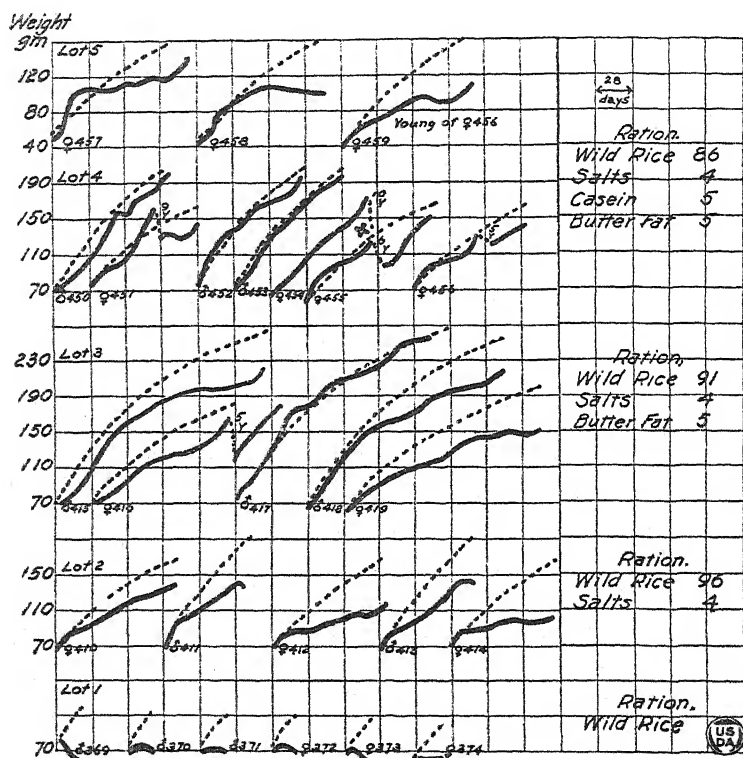 Weight
gm
Lot 5
120
80
40
♀457
♀458
♀459
Young of ♀456
28
days
Ration.
Wild Rice 86
Salts 4
Casein 5
Butter Fat 5
Lot 4
190
150
110
70
♂450
♀451
♂452
♂453
♀454
♀455
♀456
Lot 3
230
190
150
110
70
♂415
♀416
♂417
♂418
♀419
Ration,
Wild Rice 91
Salts 4
Butter Fat 5
Lot 2
150
110
70
♀410
♂411
♀412
♂413
♀414
Ration.
Wild Rice 96
Salts 4
Lot 1
70
♂369
♂370
♂371
♀372
♀373
♀374
Ration.
Wild Rice
US
DA